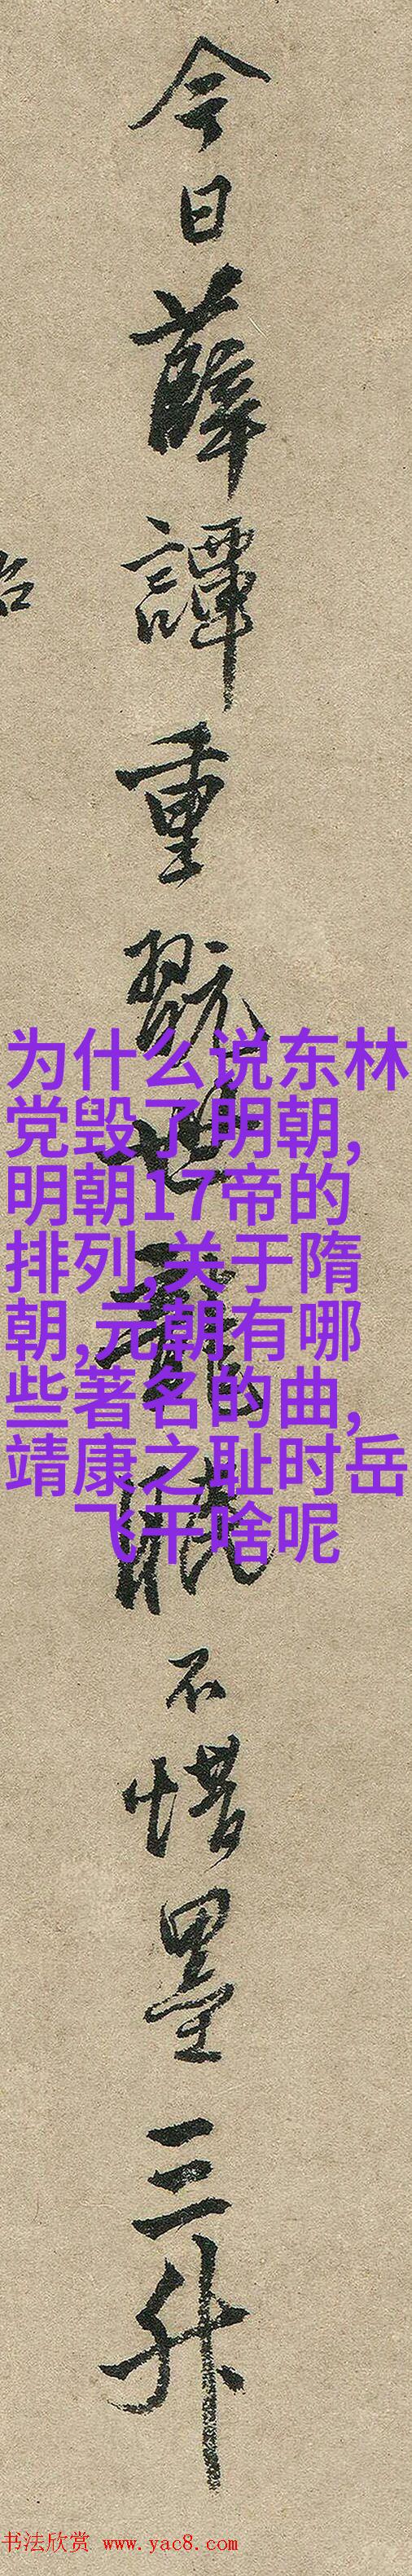 今日薛譚重翫世
不惜墨三升
为什么说东林
党毁了明朝,
明朝17帝的
排列,关于隋
朝,元朝有哪
些著名的曲,
靖康之耻时岳
飞干啥呢
书法欣赏 www.yac8.com